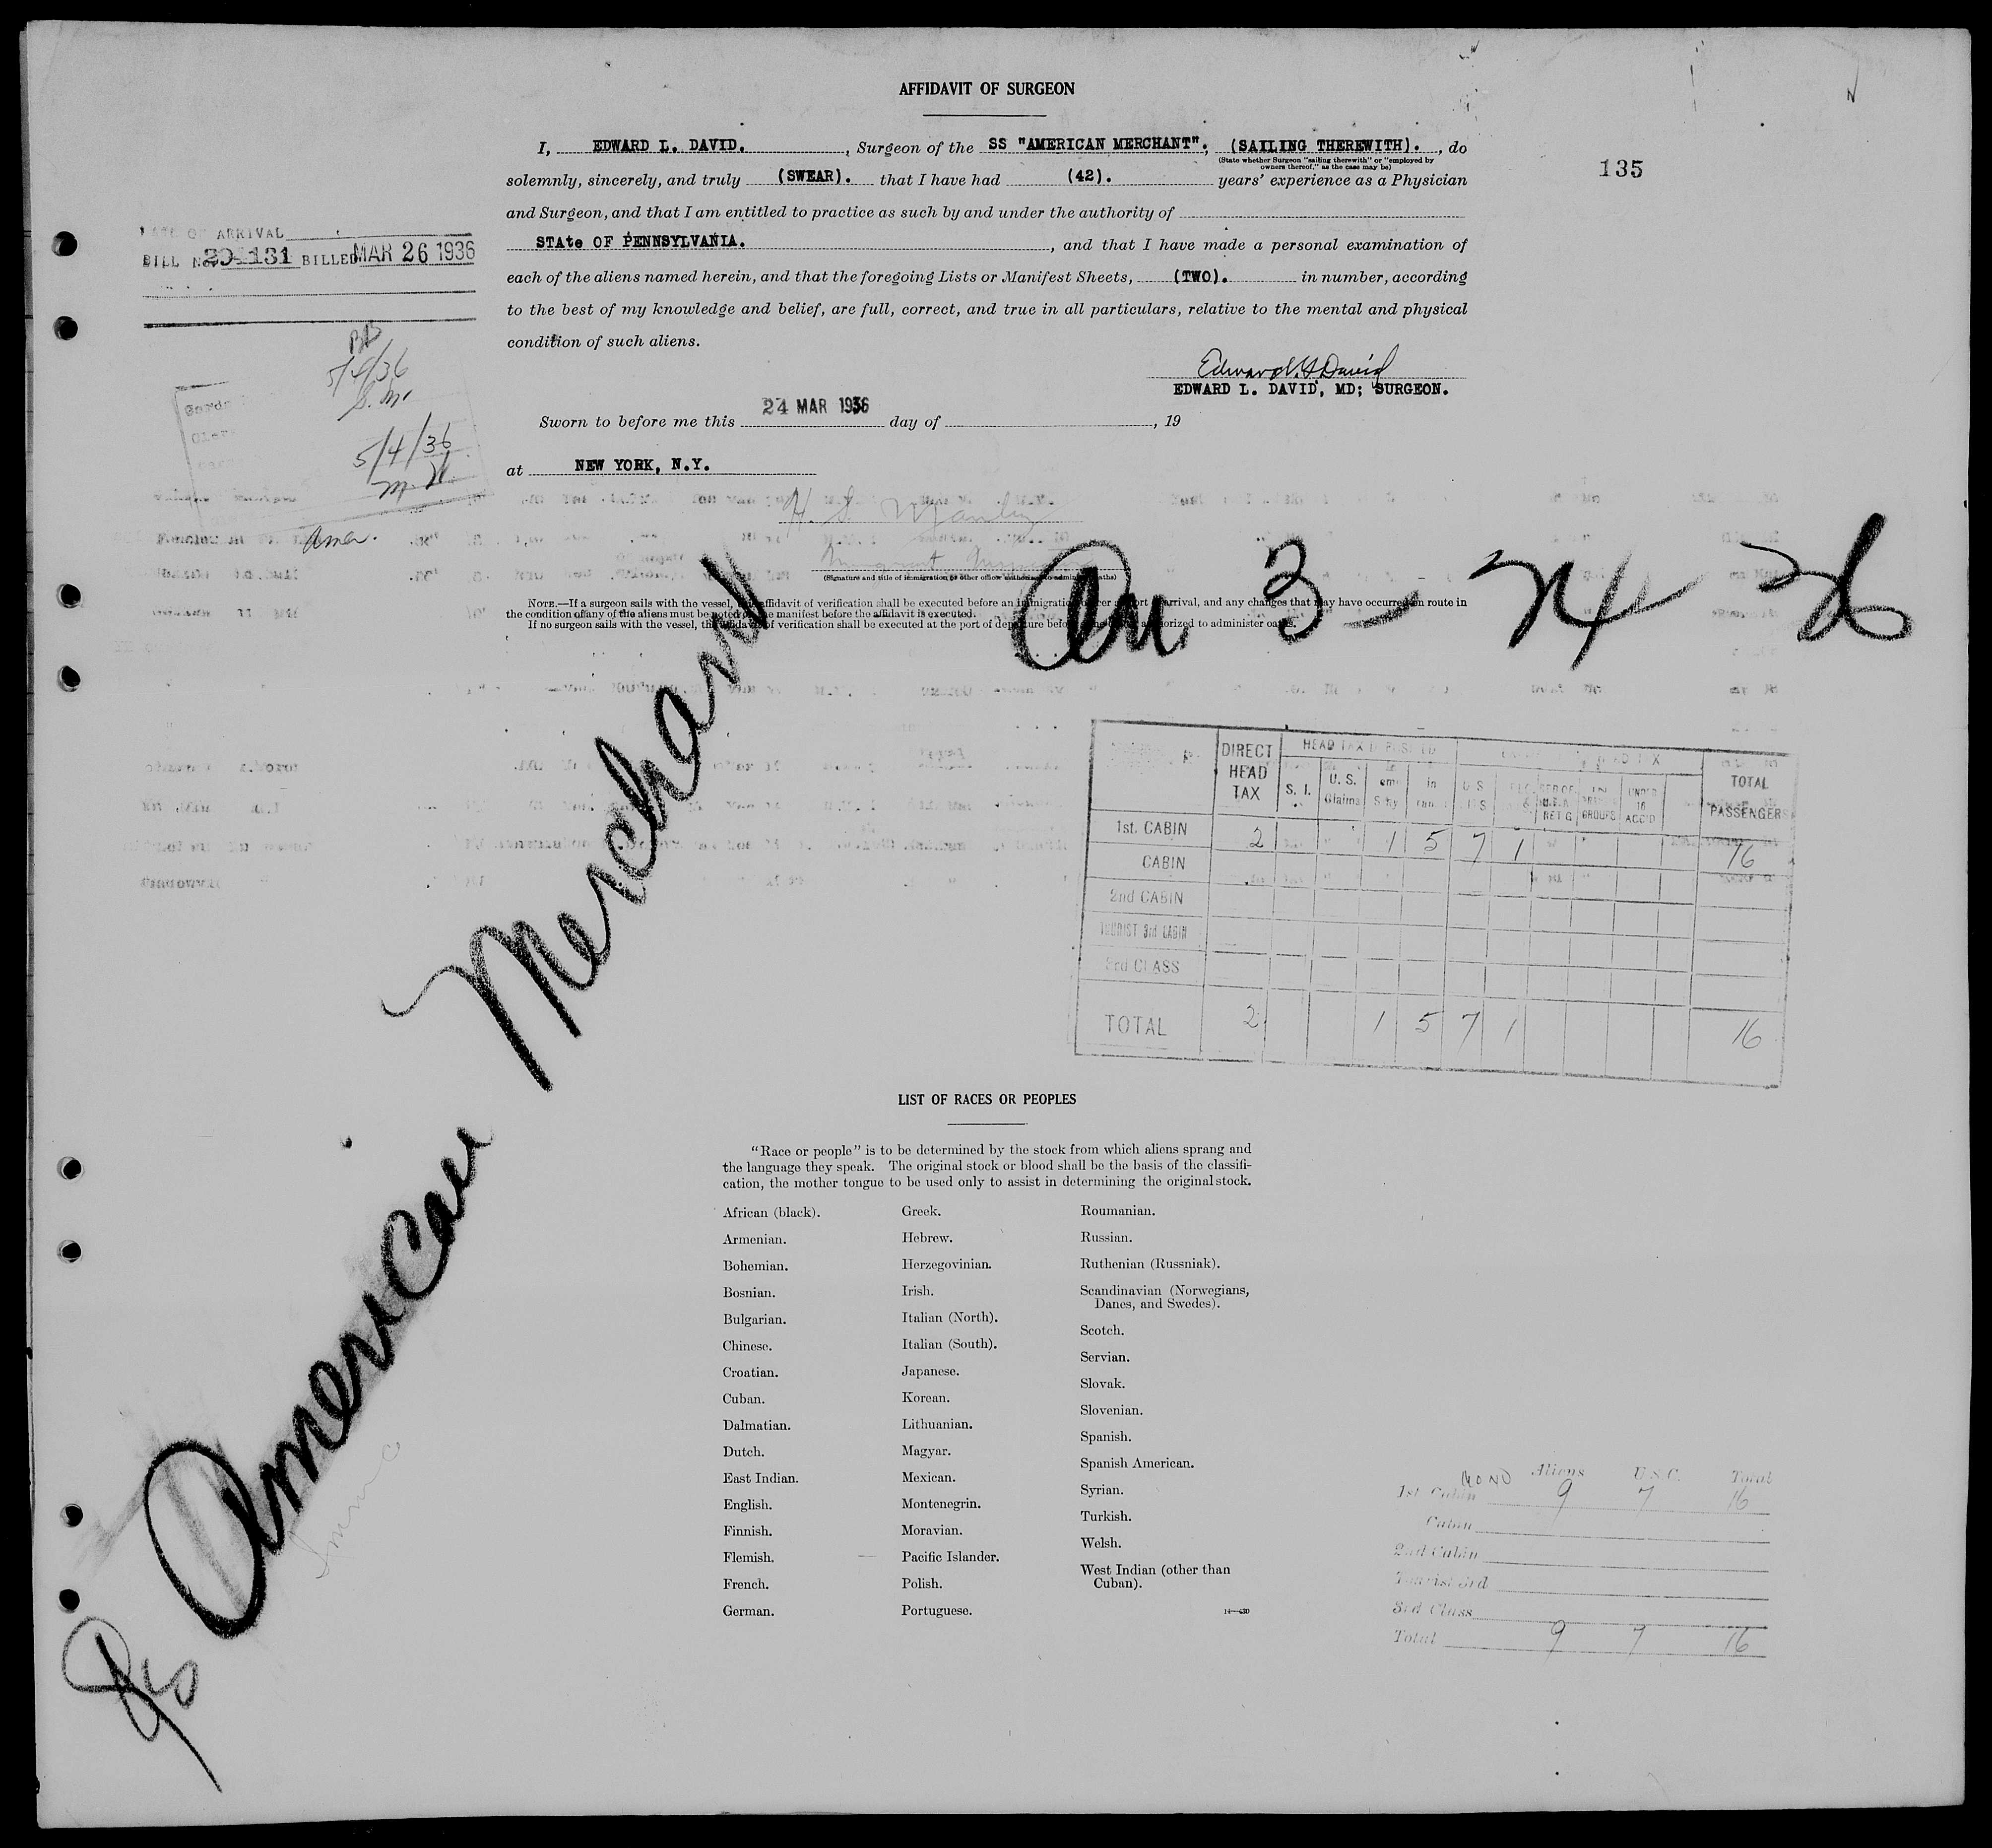 AFFIDAVIT OF SURGEON
135
I, EDWARD L. DAVID. , Surgeon of the SS "AMERICAN MERCHANT". , (SAILING THEREWITH). , do
(State whether Surgeon "sailing therewith" or "employed by
owners thereof," as the case may be)
solemnly, sincerely, and truly (SWEAR). that I have had (42). years' experience as a Physician
and Surgeon, and that I am entitled to practice as such by and under the authority of
STAte OF PENNSYLVANIA. , and that I have made a personal examination of
each of the aliens named herein, and that the foregoing Lists or Manifest Sheets, (TWO). in number, according
to the best of my knowledge and belief, are full, correct, and true in all particulars, relative to the mental and physical
condition of such aliens.
DATE OF ARRIVAL
BILL No. 20-131 BILLED MAR 26 1936
5/4/36
S.M.
5/4/36
M. N.
Amer.
EDWARD L. DAVID, MD; SURGEON.
Sworn to before me this 24 MAR 1936 day of , 19
at NEW YORK, N.Y.
(Signature and title of immigration or other officer authorized to administer oaths)
NOTE.—If a surgeon sails with the vessel, this affidavit of verification shall be executed before an immigration officer at port of arrival, and any changes that may have occurred en route in
the condition of any of the aliens must be noted on the manifest before the affidavit is executed.
If no surgeon sails with the vessel, the affidavit of verification shall be executed at the port of departure before an officer authorized to administer oaths.
3 - 24 36
SS American Merchant
DIRECT HEAD TAX
S. I.
U. S. Claims
TOTAL PASSENGERS
1st. CABIN 2 1 5 7 1 16
CABIN
2nd CABIN
TOURIST 3rd CABIN
3rd CLASS
TOTAL 2 1 5 7 1 16
LIST OF RACES OR PEOPLES
"Race or people" is to be determined by the stock from which aliens sprang and
the language they speak. The original stock or blood shall be the basis of the classifi-
cation, the mother tongue to be used only to assist in determining the original stock.
African (black).
Armenian.
Bohemian.
Bosnian.
Bulgarian.
Chinese.
Croatian.
Cuban.
Dalmatian.
Dutch.
East Indian.
English.
Finnish.
Flemish.
French.
German.
Greek.
Hebrew.
Herzegovinian.
Irish.
Italian (North).
Italian (South).
Japanese.
Korean.
Lithuanian.
Magyar.
Mexican.
Montenegrin.
Moravian.
Pacific Islander.
Polish.
Portuguese.
Roumanian.
Russian.
Ruthenian (Russniak).
Scandinavian (Norwegians,
Danes, and Swedes).
Scotch.
Servian.
Slovak.
Slovenian.
Spanish.
Spanish American.
Syrian.
Turkish.
Welsh.
West Indian (other than
Cuban).
Aliens U.S.C. Total
1st Cabin 9 7 16
Cabin
2nd Cabin
Tourist 3rd
3rd Class
Total 9 7 16